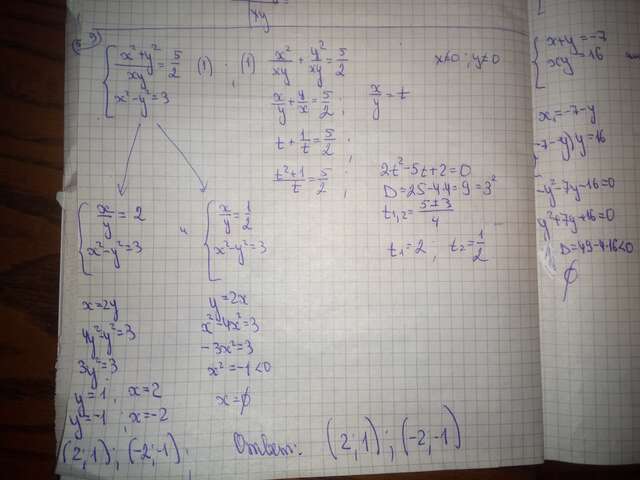 { (x²+y²)/xy = 5/2 (1) ; x≠0; y≠0
x²-y²=3
(1) x²/xy + y²/xy = 5/2
x/y + y/x = 5/2 ; x/y = t
t + 1/t = 5/2 ;
(t²+1)/t = 5/2 ;
2t²-5t+2=0
D=25-4·4=9=3²
t₁,₂ = (5±3)/4
t₁=2 ; t₂=1/2
{ x/y = 2
x²-y²=3
x=2y
4y²-y²=3
3y²=3
y=1 ; x=2
y=-1 ; x=-2
(2;1) ; (-2;-1)
{ x/y = 1/2
x²-y²=3
y=2x
x²-4x²=3
-3x²=3
x²=-1<0
x=∅
(2;1) ; (-2;-1)
{ x+y=-7
xy=16
x=-7-y
(-7-y)y=16
-y²-7y-16=0
y²+7y+16=0
D=49-4·16<0
∅